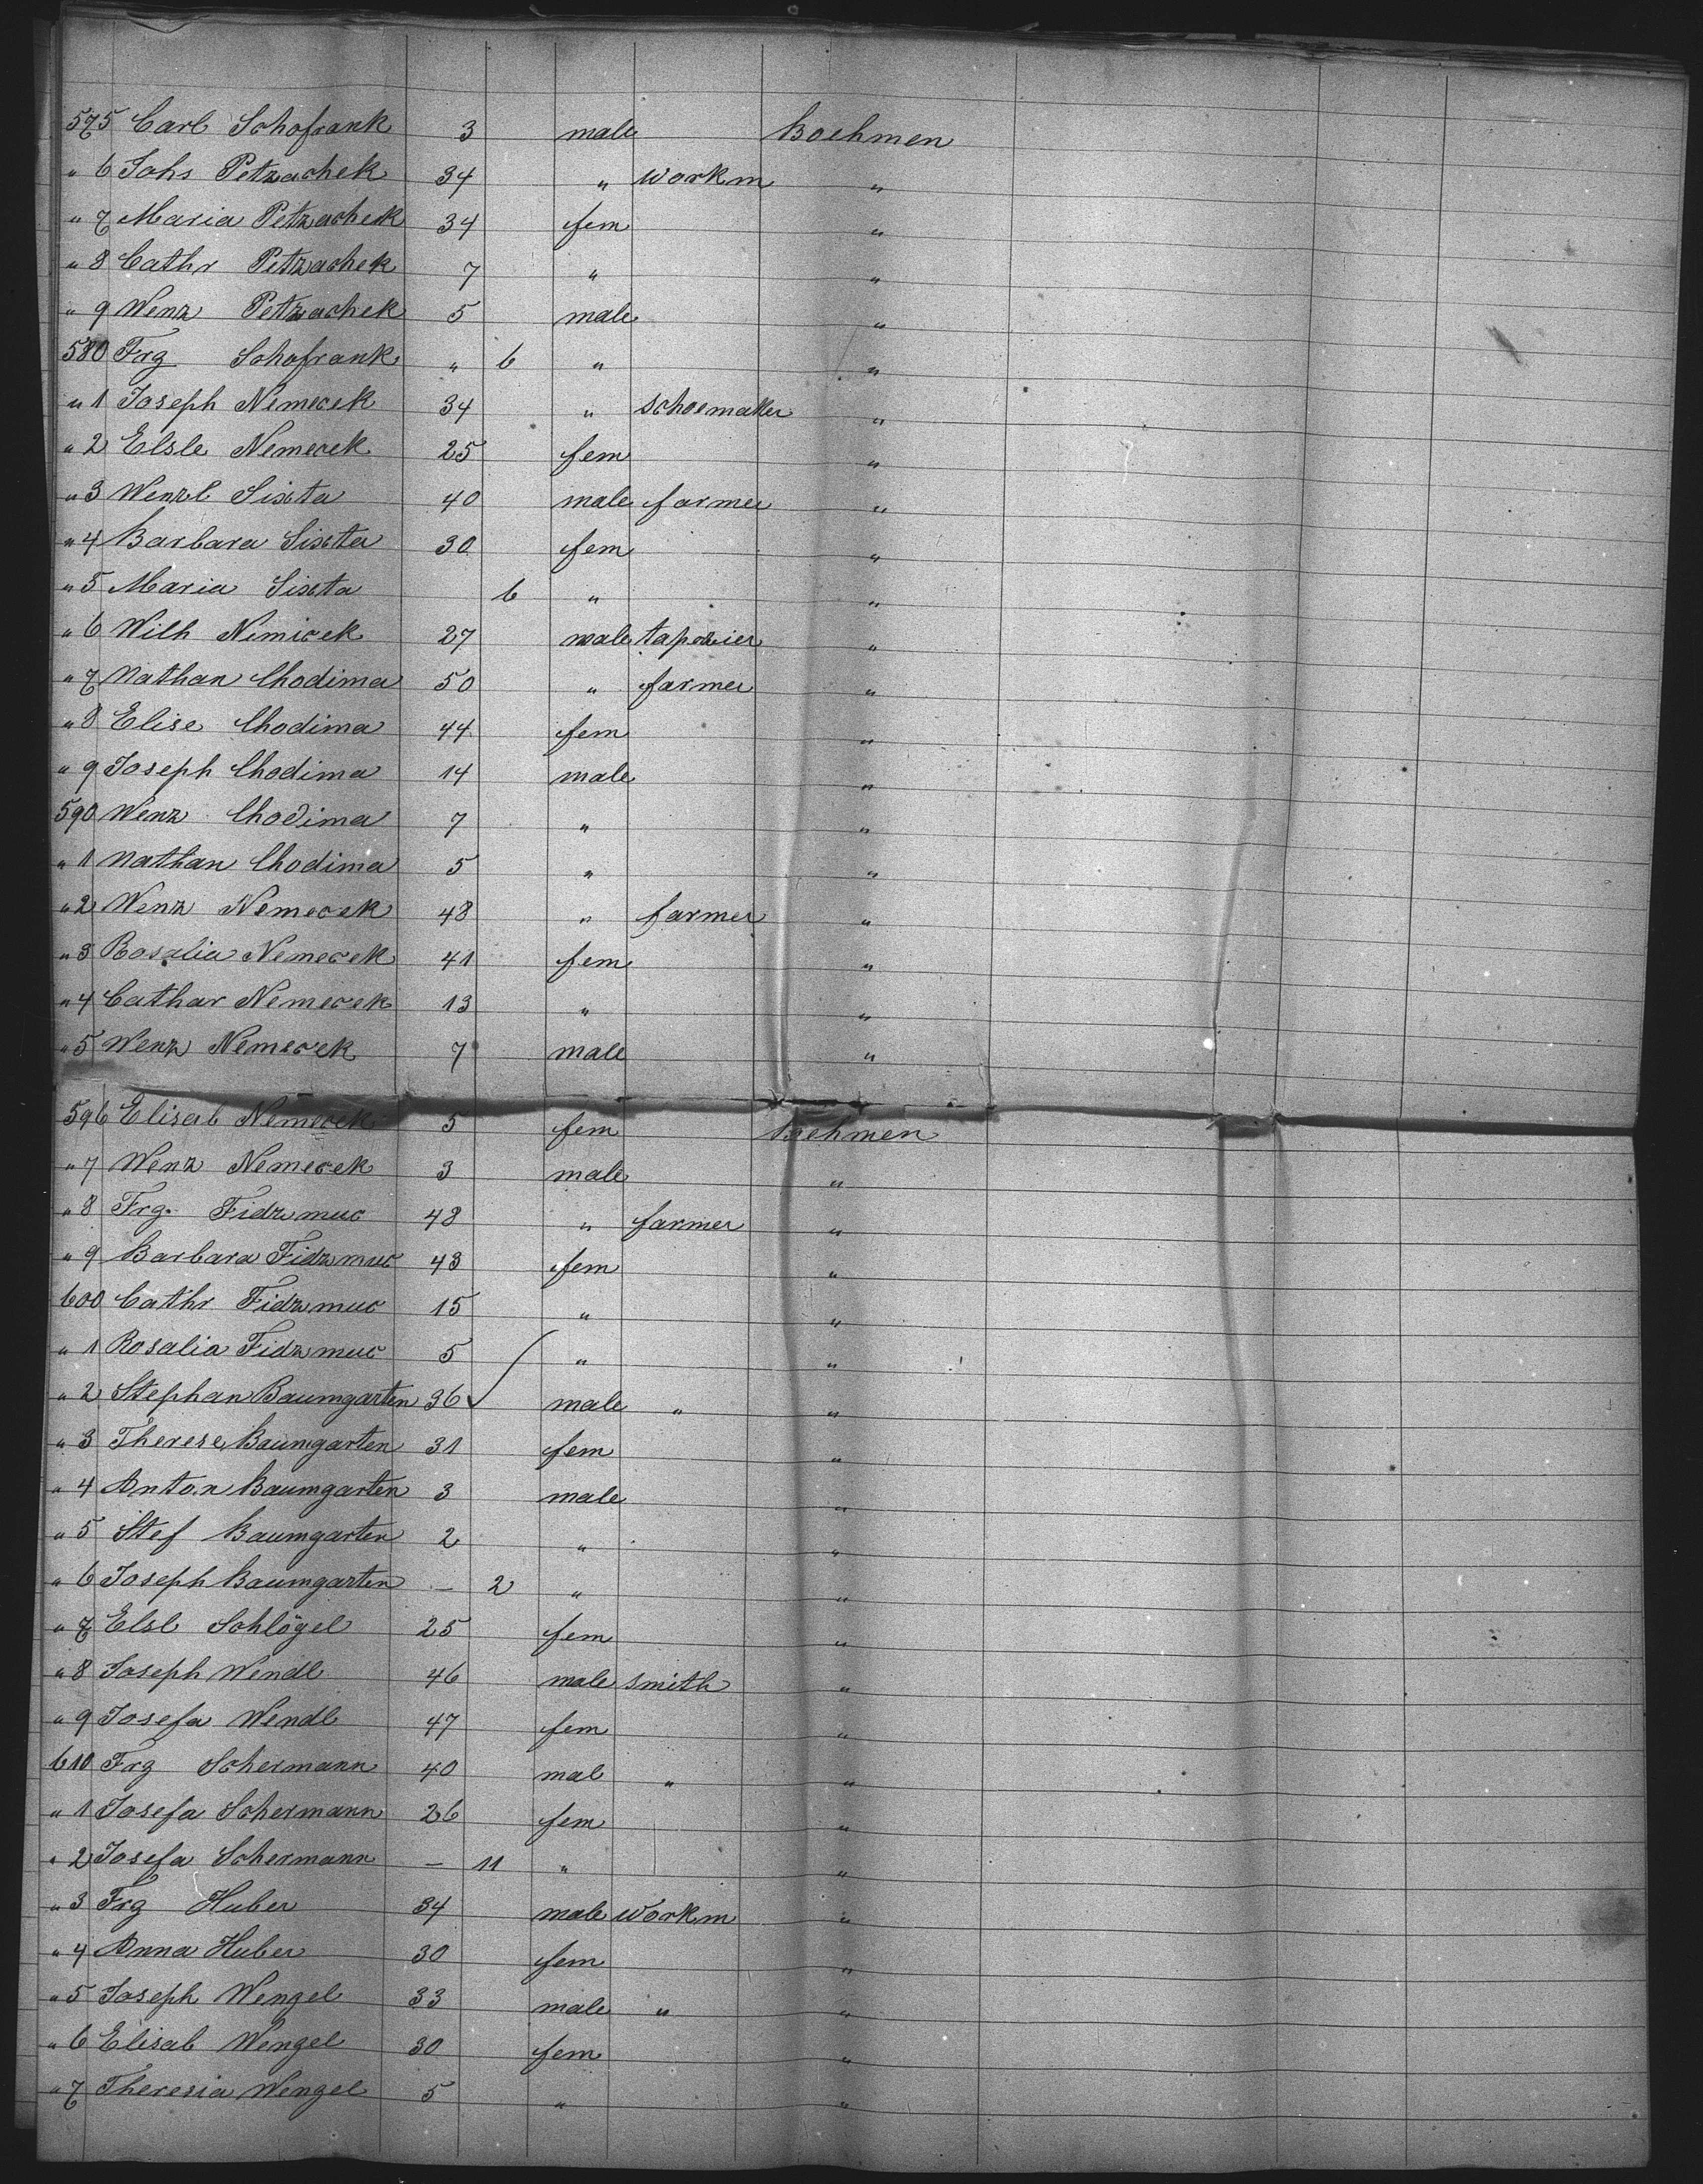 575 Carl Schofrank 3 male Boehmen
" 6 Johs Petzachek 34 " workm "
" 7 Maria Petzachek 34 fem "
" 8 Cathr Petzachek 7 " "
" 9 Wenz Petzachek 5 male "
580 Frz Schofrank " 6 " "
" 1 Joseph Nemecek 34 " schoemaker "
" 2 Elsle Nemecek 25 fem "
" 3 Wenzl Sixta 40 male farmer "
" 4 Barbara Sixta 30 fem "
" 5 Maria Sixta 6 " "
" 6 Wilh Nimicek 27 male tapezier "
" 7 Nathan Chodima 50 " farmer "
" 8 Elise Chodima 44 fem "
" 9 Joseph Chodima 14 male "
590 Wenz Chodima 7 " "
" 1 Nathan Chodima 5 " "
" 2 Wenz Nemecek 48 " farmer "
" 3 Rosalia Nemecek 41 fem "
" 4 Cathar Nemecek 13 " "
" 5 Wenz Nemecek 7 male "
596 Elisab Nemecek 5 fem Boehmen
" 7 Wenz Nemecek 3 male "
" 8 Frz. Fidzmuc 48 " farmer "
" 9 Barbara Fidzmuc 43 fem "
600 Cathr Fidzmuc 15 " "
" 1 Rosalia Fidzmuc 5 " "
" 2 Stephan Baumgarten 36 male " "
" 3 Therese Baumgarten 31 fem "
" 4 Anton Baumgarten 3 male "
" 5 Stef Baumgarten 2 " "
" 6 Joseph Baumgarten – 2 " "
" 7 Elsl Schlögel 25 fem "
" 8 Joseph Wendl 46 male smith "
" 9 Josefa Wendl 47 fem "
610 Frz Schermann 40 mal " "
" 1 Josefa Schermann 26 fem "
" 2 Josefa Schermann – 11 " "
" 3 Frz Huber 34 male workm "
" 4 Anna Huber 30 fem "
" 5 Joseph Wengel 33 male " "
" 6 Elisab Wengel 30 fem "
" 7 Theresia Wengel 5 " "